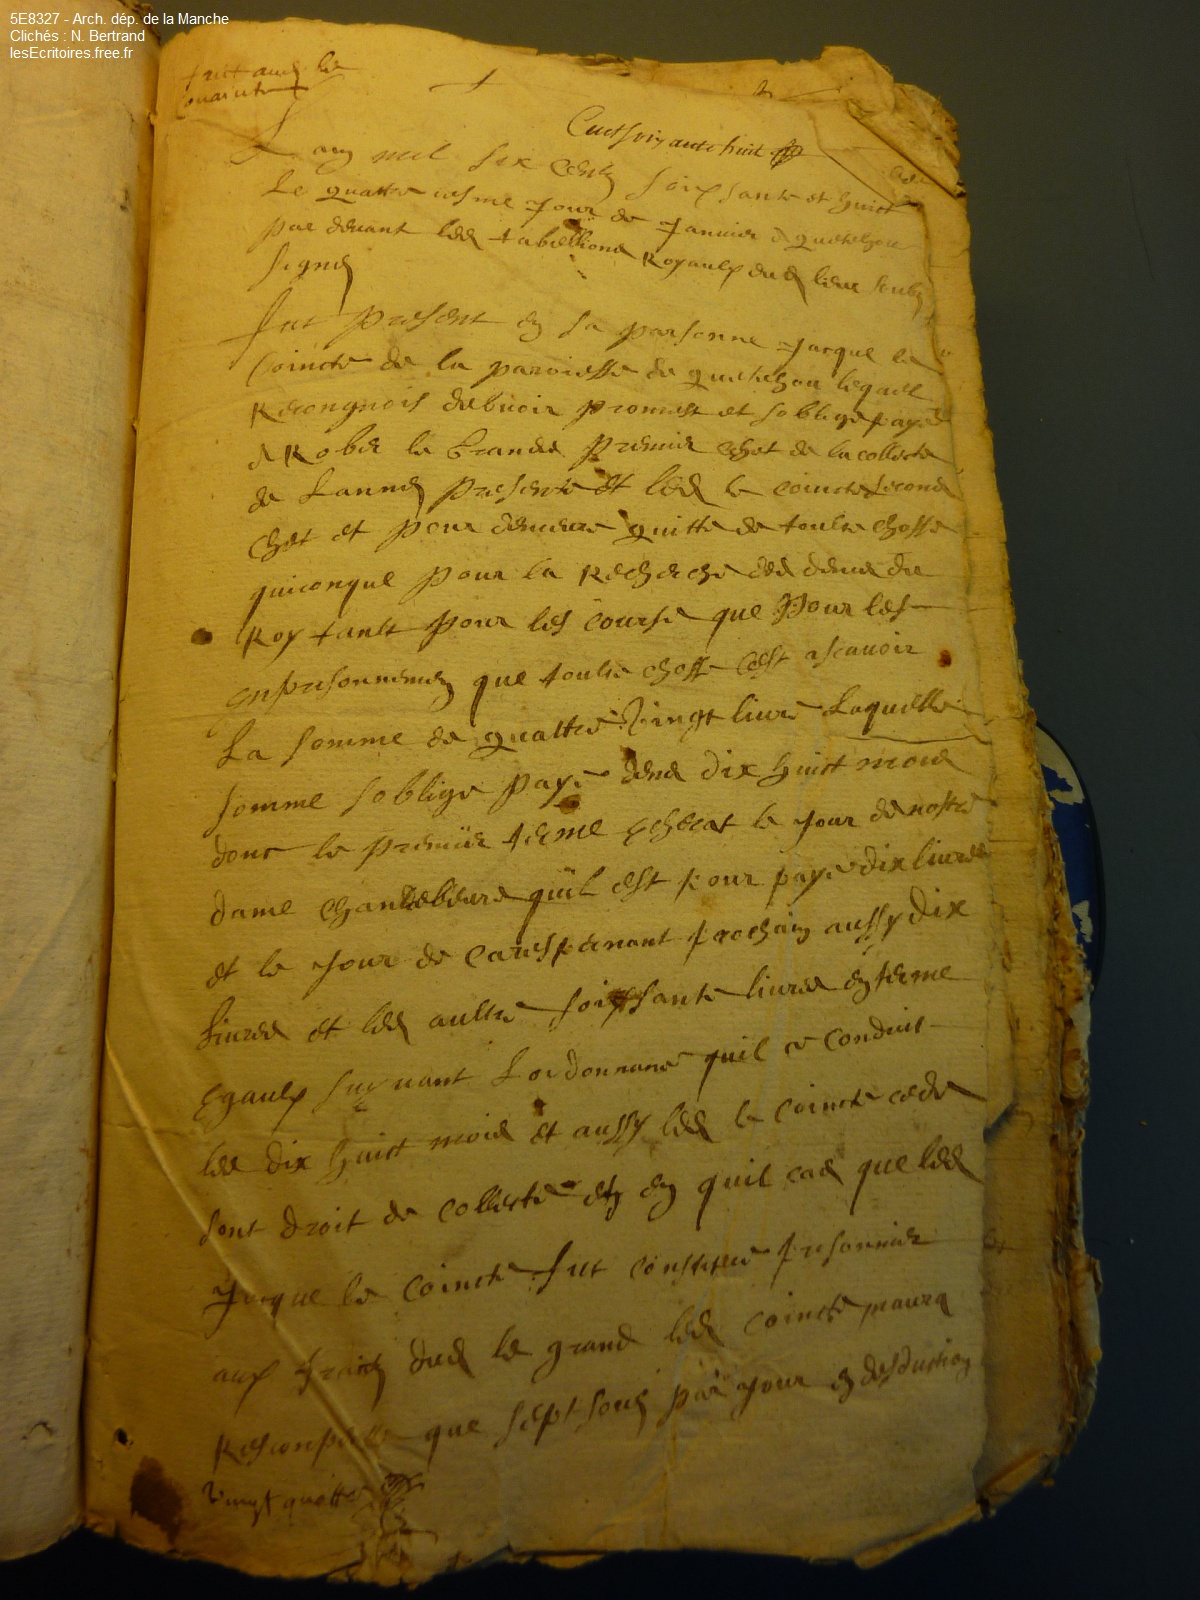 5E8327 - Arch. dép. de la Manche
Clichés : N. Bertrand
lesEcritoires.free.fr
le
Centsoixante huit
Lan mil six cents soixsante et huict
Le quattriesme jour de Janvier a quetehou
par devant les tabellions Royaulx dud lieu soubz
signes
fut present en sa parsonne Jacque le
Coincte de la paroiesse de quetehou lequel
Recongnois debvoir promist et soblige paye
a Rober le Grande premier chet de la collecte
de Lannee presente et led le coincte second
chet et pour demeure quitte de toulte chosse
quiconque pour la Recherche des denie du
Roy tant pour les course que pour les
enprisonnemen que toulte chosse cest ascavoir
La somme de quattre vingt livre Laquelle
somme soblige paye dens dix huict mois
donc le premier terme echerat le jour de nostre
dame chandebeure quil est pour paye dix livres
et le jour de caresprenant prochain aussy dix
Livres et les aultre soixssante livres en terme
Egaulx suyvant Lordonnance quil ce conduit
les dix huict mois et aussy led le coincte cede
sont droit de collecte et en quil cas que led
Jacque le coincte fut constitue prisonnier
aux frais dud le grand led coincte naura
que sept sous par jour en desduction
vingt quatre